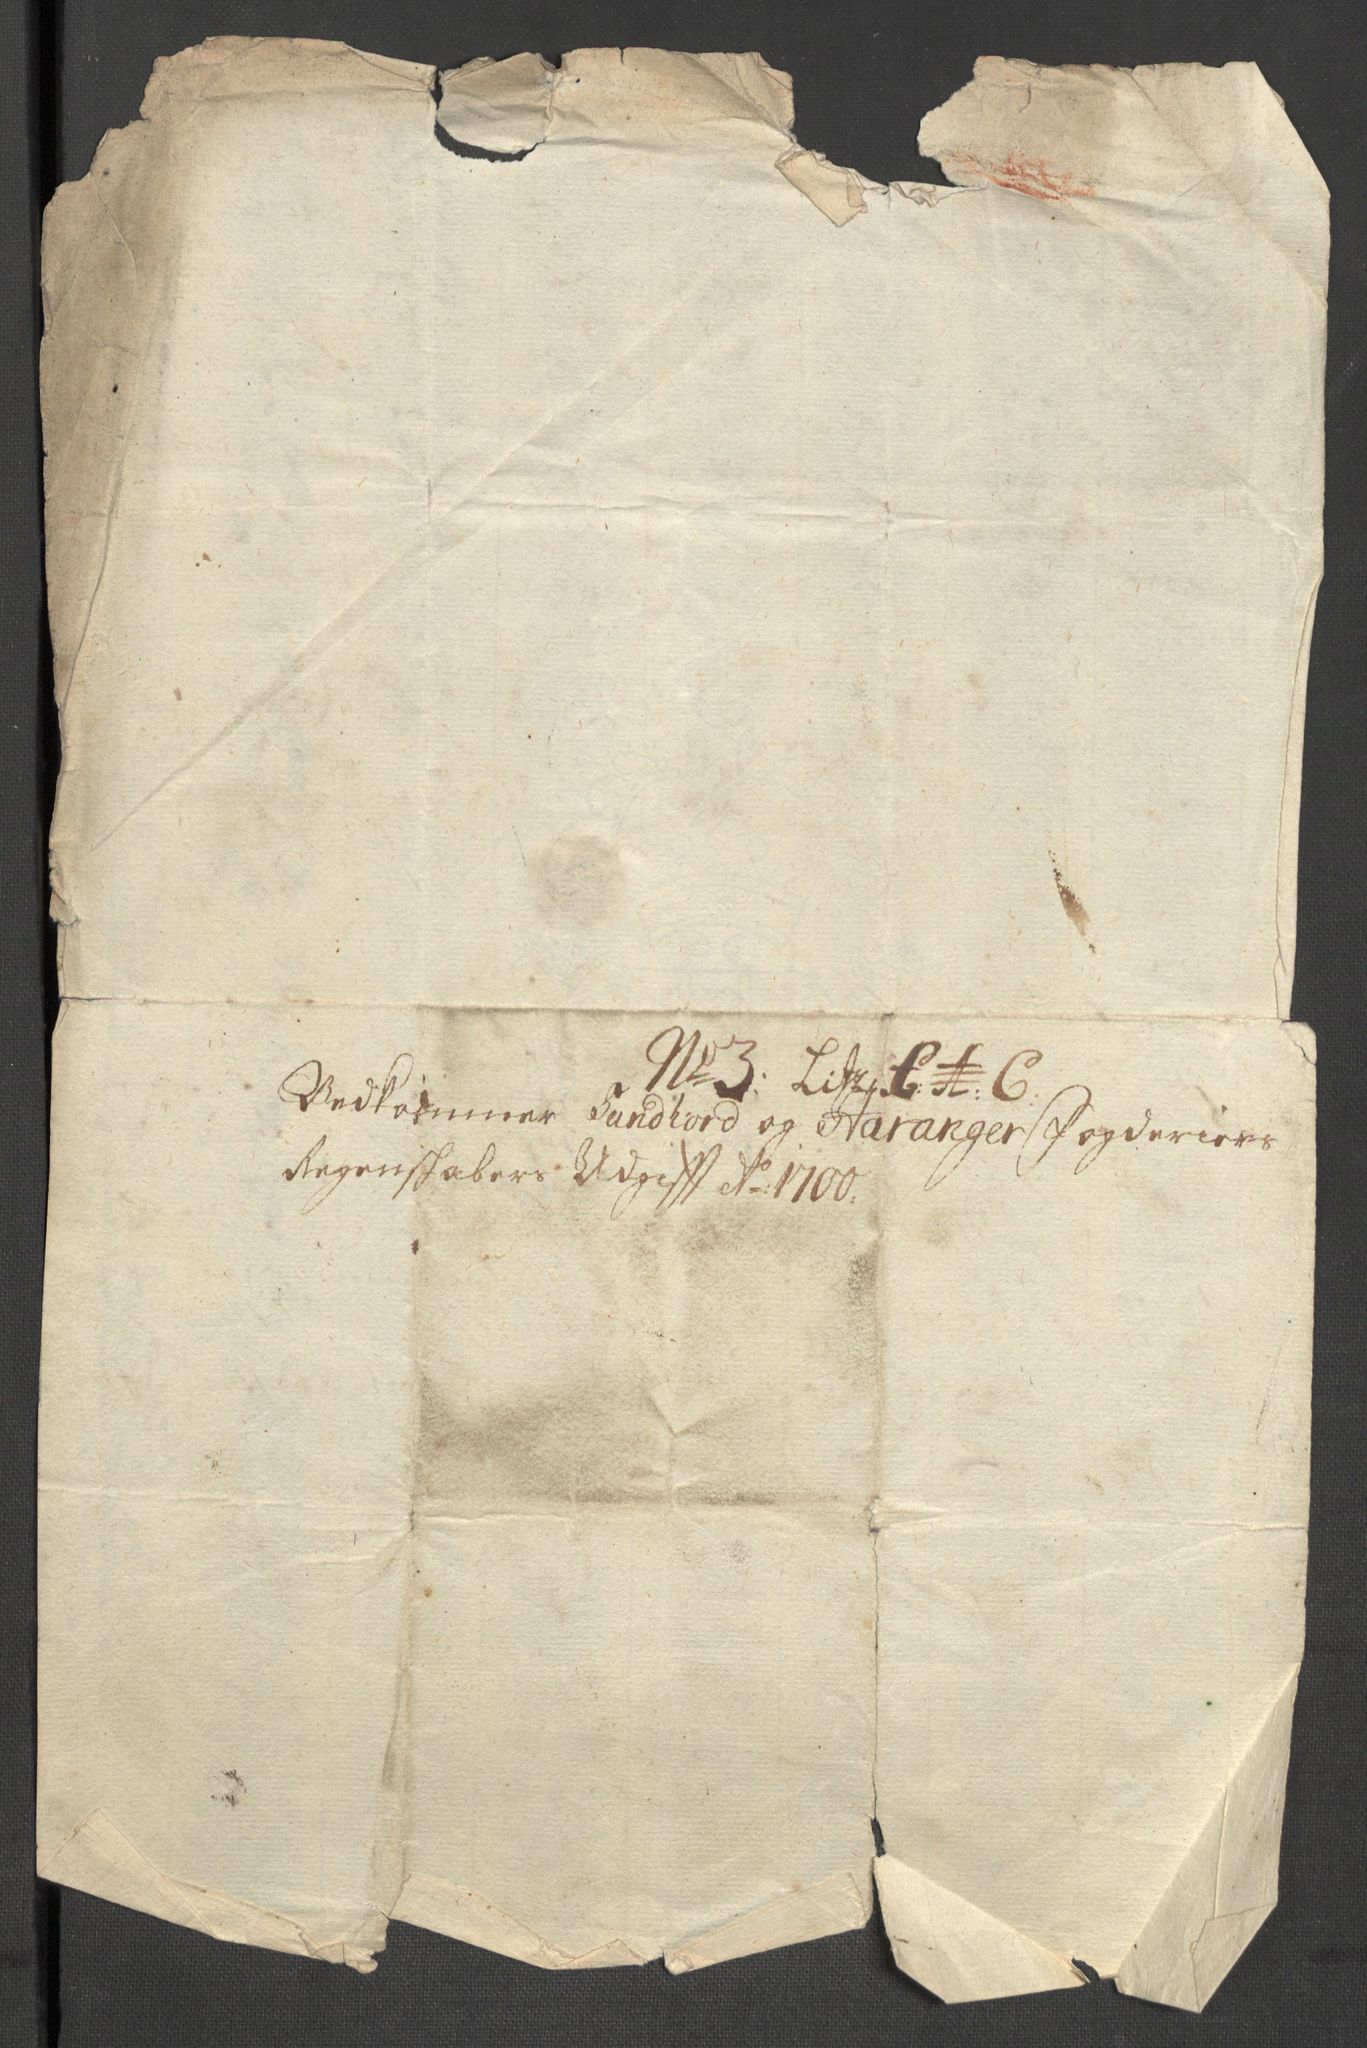 No 3: Litr: C: A: C.
Vedkommer Sundhord og Haranger Fogderiers
Regenskabers Udgifft Ao: 1700: